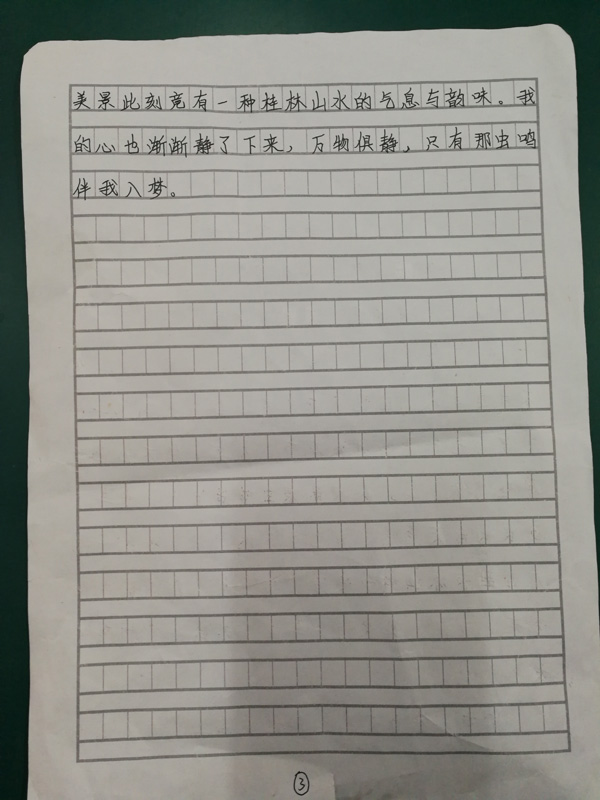 美景此刻竟有一种桂林山水的气息与韵味。我
的心也渐渐静了下来，万物俱静，只有那虫鸣
伴我入梦。
③